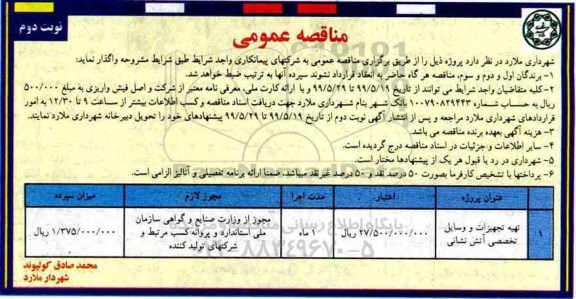 مناقصه عمومی
نوبت دوم
شهرداری ملارد در نظر دارد پروژه ذیل را از طریق برگزاری مناقصه عمومی به شرکتهای پیمانکاری واجد شرایط طبق شرایط مشروحه واگذار نماید:
۱- برندگان اول و دوم و سوم، مناقصه هر گاه حاضر به انعقاد قرارداد نشوند سپرده آنها به ترتیب ضبط خواهد شد.
۲- کلیه متقاضیان واجد شرایط می توانند از تاریخ ۹۹/۵/۱۹ تا ۹۹/۵/۲۹ و با ارائه کارت ملی، معرفی نامه معتبر از شرکت و اصل فیش واریزی به مبلغ ۵۰۰/۰۰۰
ریال به حساب شماره ۱۰۰۷۹۰۸۲۹۴۴۳ بانک شهر بنام شهرداری ملارد جهت دریافت اسناد مناقصه و کسب اطلاعات بیشتر از ساعت ۹ تا ۱۲/۳۰ به امور
قراردادهای شهرداری ملارد مراجعه و پس از انتشار آگهی نوبت دوم از تاریخ ۹۹/۵/۱۹ تا ۹۹/۵/۲۹ پیشنهادهای خود را تحویل دبیرخانه شهرداری ملارد نمایند.
۳- هزینه آگهی بعهده برنده مناقصه می باشد.
۴- سایر اطلاعات و جزئیات در اسناد مناقصه درج گردیده است.
۵- شهرداری در رد یا قبول هر یک از پیشنهادها مختار است.
۶- پرداختها با تشخیص کارفرما بصورت ۵۰ درصد نقد و ۵۰ درصد غیرنقد میباشد. ضمنا ارائه برنامه تفصیلی و آنالیز الزامی است.
عنوان پروژه اعتبار مدت اجرا مجوز لازم میزان سپرده
۱ تهیه تجهیزات و وسایل تخصصی آتش نشانی ۲۷/۵۰۰/۰۰۰/۰۰۰ ریال ۱ ماه مجوز از وزارت صنایع و گواهی سازمان ملی استاندارد و پروانه کسب مرتبط و شرکتهای تولید کننده ۱/۳۷۵/۰۰۰/۰۰۰ ریال
محمد صادق کولیوند
شهردار ملارد